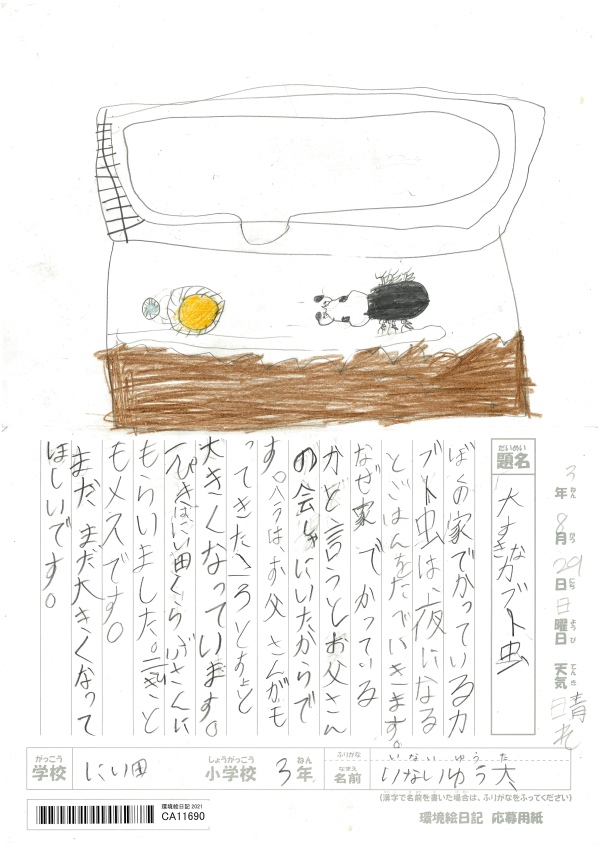 3年8月29日日曜日 天気 晴れ
ねん がつ にち ようび てんき
だいめい
題名 大すきなカブト虫
ぼくの家でかっているカ
ブト虫は、夜になる
とごはんをたでいきます。
なぜ家でかっている
かと言うとお父さん
の会しゃにいたからで
す。お父さんがも
ってきたころと
大きくなっています。
にい田くらぶさんに
もらいました。
もメスです。
まだまだ大きくなって
ほしいです。
がっこう しょうがっこう ねん ふりがな いないゆうた
学校 にい田 小学校 3年 なまえ 名前 いないゆう太
(漢字で名前を書いた場合は、ふりがなをふってください)
環境絵日記 応募用紙
環境絵日記 2021
CA11690